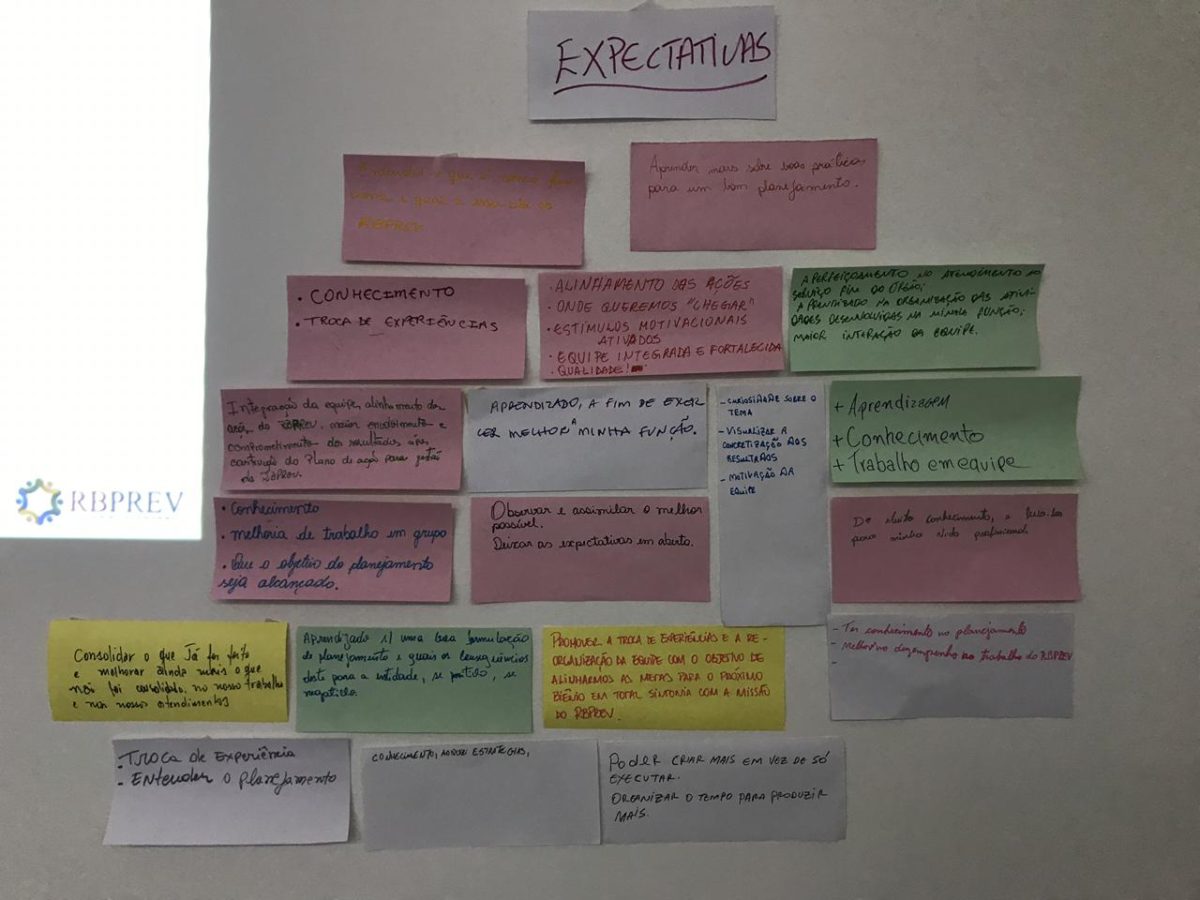 EXPECTATIVAS
RBPREV
Aprender mais sobre boas práticas
para um bom planejamento.
• CONHECIMENTO
• TROCA DE EXPERIÊNCIAS
• ALINHAMENTO DAS AÇÕES
• ONDE QUEREMOS "CHEGAR"
• ESTÍMULOS MOTIVACIONAIS
ATIVADOS
• EQUIPE INTEGRADA E FORTALECIDA
• QUALIDADE!
APERFEIÇOAMENTO NO ATENDIMENTO AO
SERVIÇO FIM DO ÓRGÃO;
APRENDIZADO NA ORGANIZAÇÃO DAS ATIVI-
DADES DESENVOLVIDAS NA MINHA FUNÇÃO;
MAIOR INTERAÇÃO DA EQUIPE.
Integração da equipe, alinhamento das
do RBPREV, maior envolvimento e
comprometimento dos resultados
construção do Plano de ação para gestão
do RBPREV.
APRENDIZADO, A FIM DE EXER
CER MELHOR A MINHA FUNÇÃO.
- CURIOSIDADE SOBRE O
TEMA
- VISUALIZAR A
CONCRETIZAÇÃO DOS
RESULTADOS
- MOTIVAÇÃO DA
EQUIPE
+ Aprendizagem
+ Conhecimento
+ Trabalho em equipe
• Conhecimento
• melhoria de trabalho em grupo
• Que o objetivo do planejamento
seja alcançado.
Observar e assimilar o melhor
possível.
Deixar as expectativas em aberto.
conhecimento, e
para minha vida profissional
Consolidar o que Já foi feito
e melhorar ainda mais o que
não foi consolidado, no nosso trabalho
e nos nossos atendimentos
Aprendizado s/ uma boa formulação
de planejamento e quais as consequências
deste para a entidade, se positivo, se
negativo.
PROMOVER A TROCA DE EXPERIÊNCIAS E A RE-
ORGANIZAÇÃO DA EQUIPE COM O OBJETIVO DE
ALINHARMOS AS METAS PARA O PRÓXIMO
BIÊNIO EM TOTAL SINTONIA COM A MISSÃO
DO RBPREV.
- Ter conhecimento no planejamento
- Melhor no desempenho no trabalho do RBPREV
-
- TROCA DE EXPERIÊNCIA
- ENTENDER O planejamento
CONHECIMENTO, NOVAS ESTRATÉGIAS,
PODER CRIAR MAIS EM VEZ DE SÓ
EXECUTAR.
ORGANIZAR O TEMPO PARA PRODUZIR
MAIS.
RBPREV